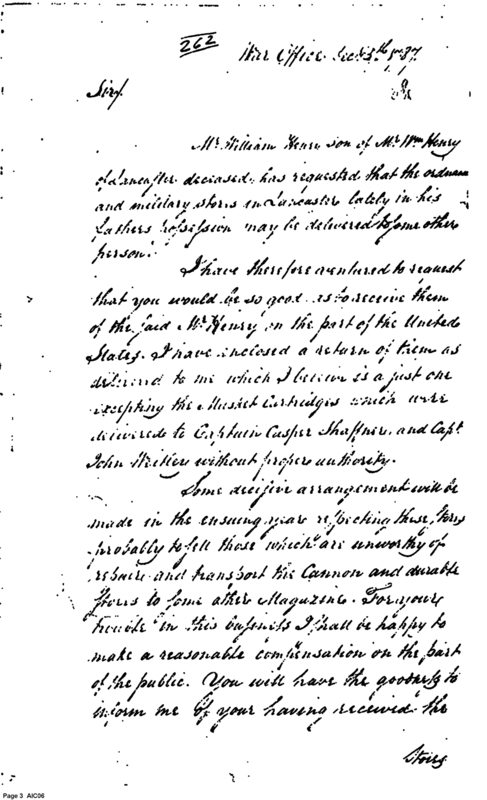 262
War Office Dec. 5th 1787
Sir
Mr. William Henry son of Mr. Wm Henry
of Lancaster deceased, has requested that the ordnance
and military stores in Lancaster lately in his
Fathers possession may be delivered to some other
person.
I have therefore ventured to request
that you would be so good as to receive them
of the said Mr. Henry on the part of the United
States. I have enclosed a return of them as
delivered to me which I believe is a just one
excepting the Musket Cartridges which were
delivered to Captain Casper Shaffner and Capt
John without proper authority.
Some decisive arrangement will be
made in the ensuing year respecting these stores
probably to sell those which are unworthy of
repair and transport the Cannon and durable
stores to some other Magazine. For your
trouble in this business I shall be happy to
make a reasonable compensation on the part
of the public. You will have the goodness to
inform me of your having received the
Stores
Page 3 AIC06